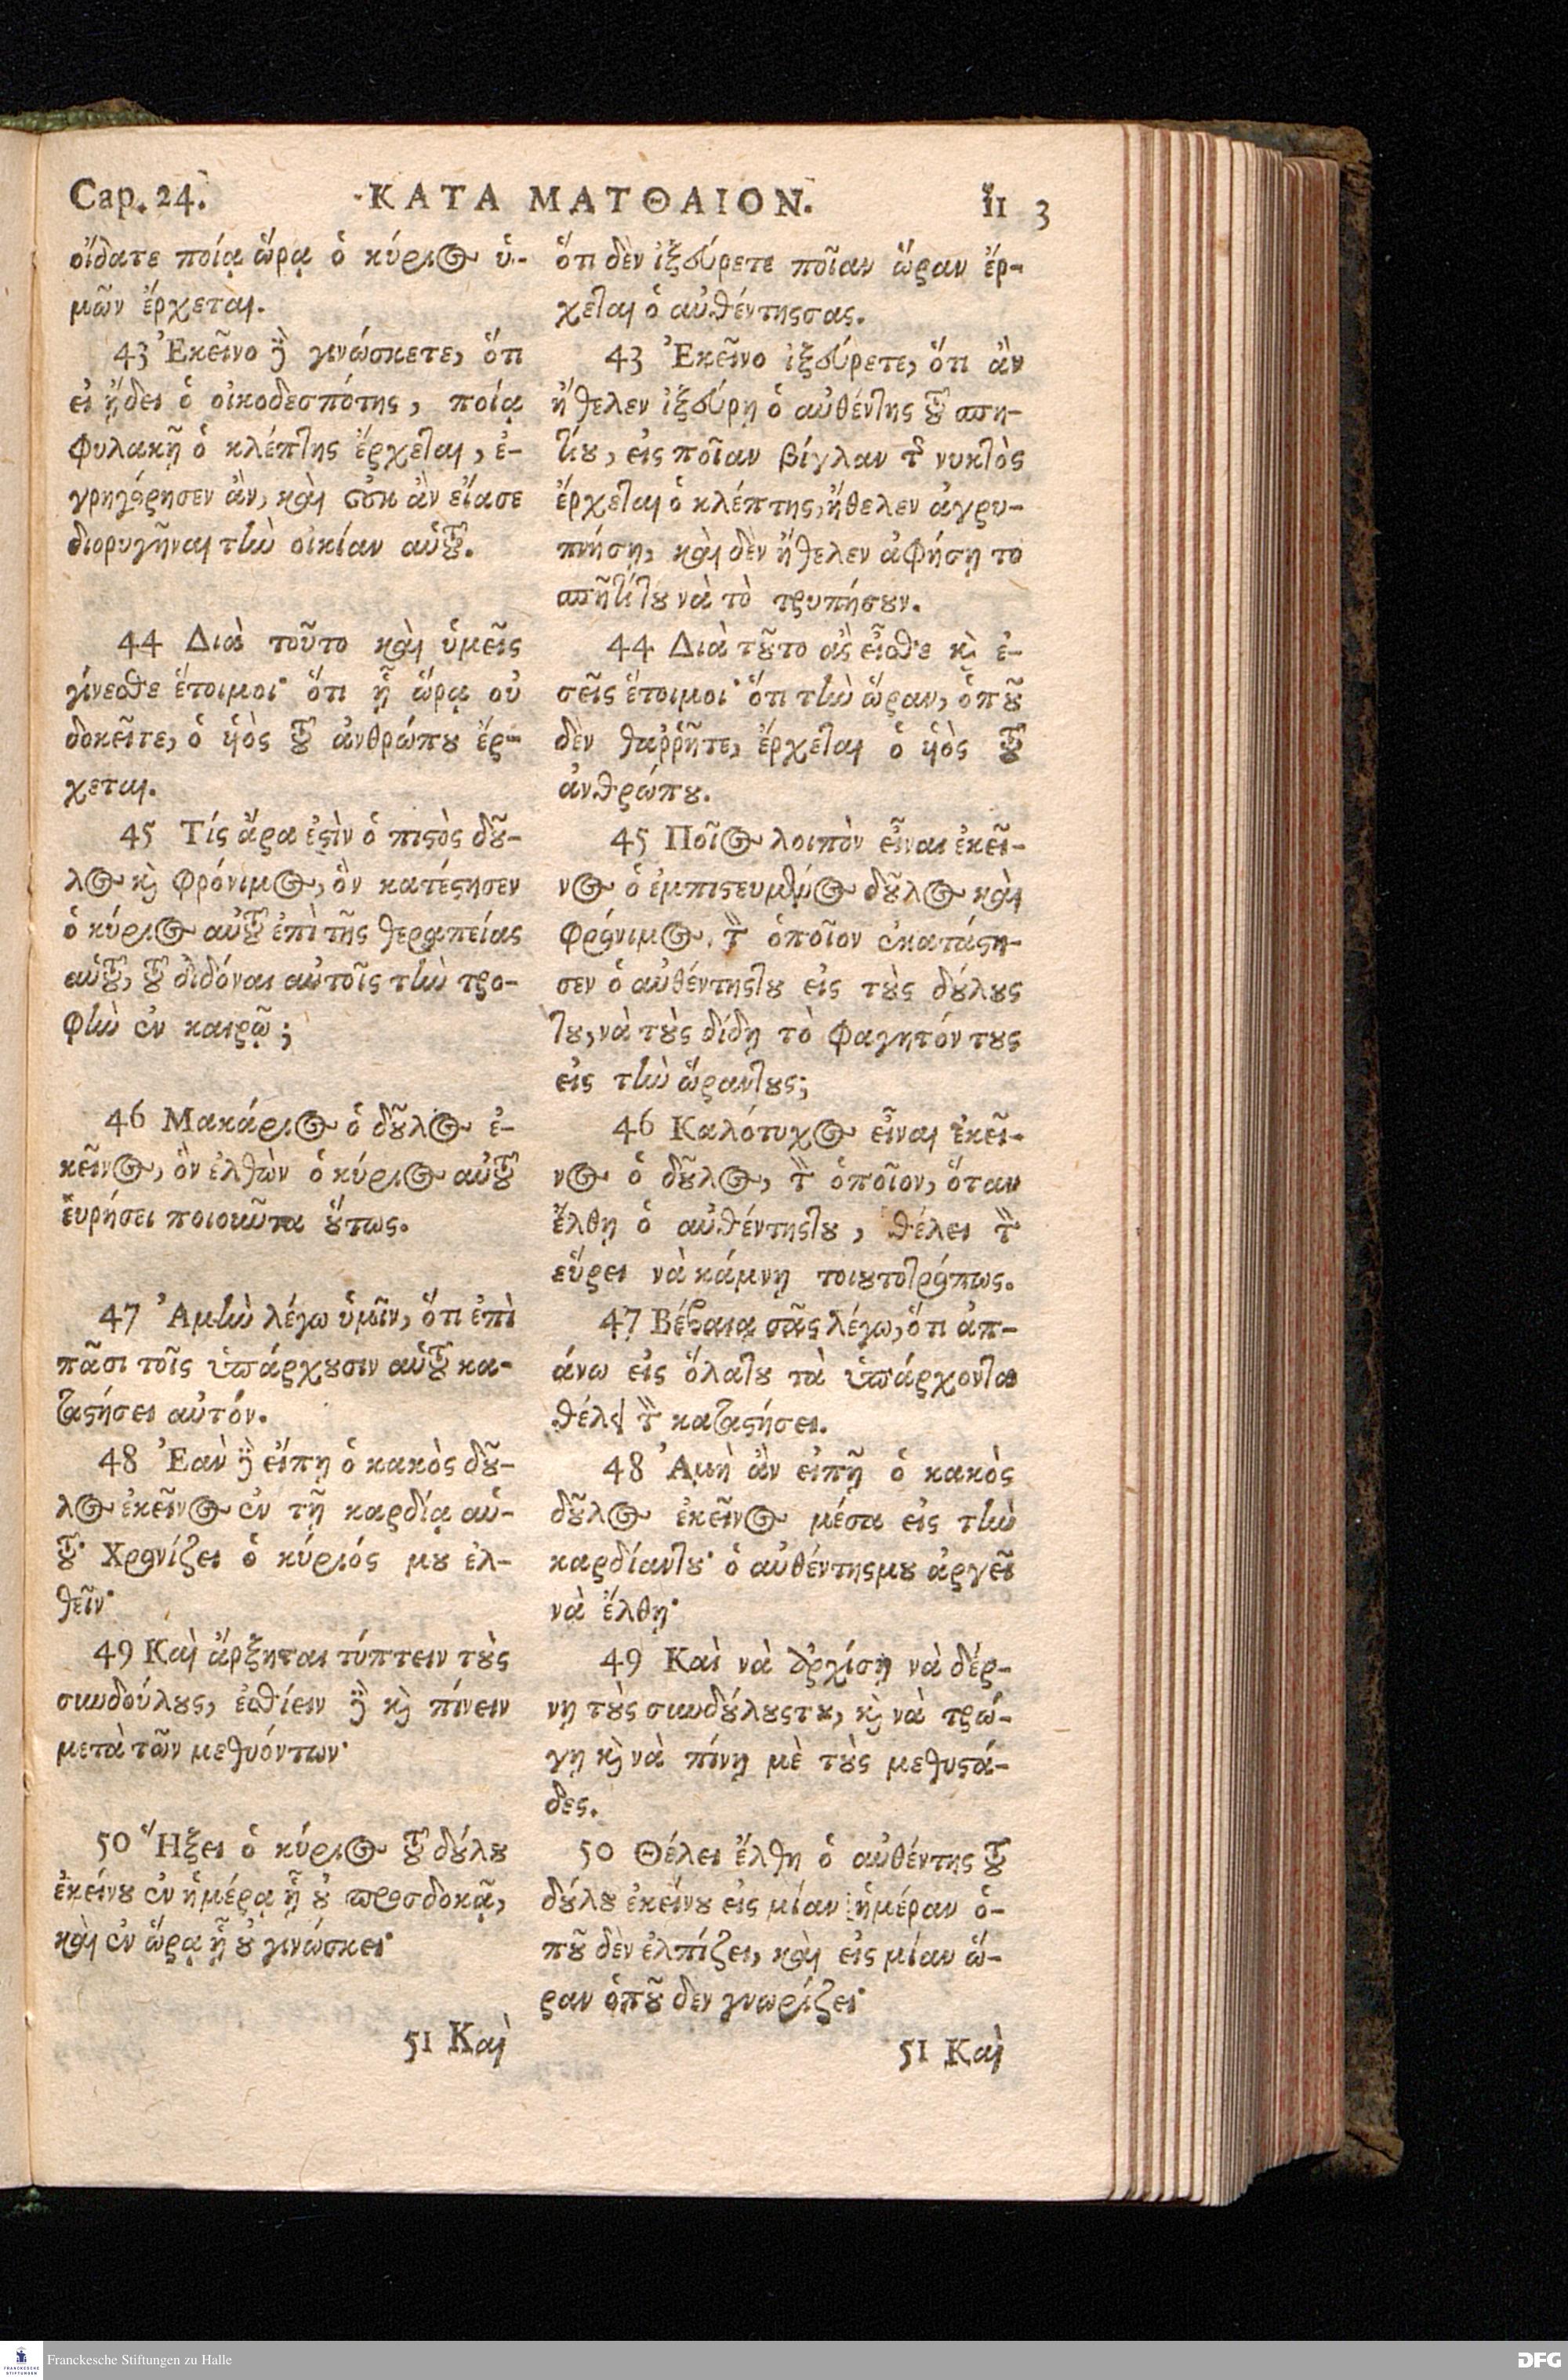 Cap. 24. ΚΑΤΑ ΜΑΤΘΑΙΟΝ. 113
οἴδατε ποίᾳ ὥρᾳ ὁ κύριος ὑ-
μῶν ἔρχεται.
43 Ἐκεῖνο δὲ γινώσκετε, ὅτι
εἰ ᾔδει ὁ οἰκοδεσπότης, ποίᾳ
φυλακῇ ὁ κλέπτης ἔρχεται, ἐ-
γρηγόρησεν ἂν, καὶ οὐκ ἂν εἴασε
διορυγῆναι τὴν οἰκίαν αὑτοῦ.
44 Διὰ τοῦτο καὶ ὑμεῖς
γίνεσθε ἕτοιμοι· ὅτι ᾗ ὥρᾳ οὐ
δοκεῖτε, ὁ υἱὸς τοῦ ἀνθρώπου ἔρ-
χεται.
45 Τίς ἄρα ἐστὶν ὁ πιστὸς δοῦ-
λος καὶ φρόνιμος, ὃν κατέστησεν
ὁ κύριος αὐτοῦ ἐπὶ τῆς θεραπείας
αὑτοῦ, τοῦ διδόναι αὐτοῖς τὴν τρο-
φὴν ἐν καιρῷ;
46 Μακάριος ὁ δοῦλος ἐ-
κεῖνος, ὃν ἐλθὼν ὁ κύριος αὐτοῦ
εὑρήσει ποιοῦντα οὕτως.
47 Ἀμὴν λέγω ὑμῖν, ὅτι ἐπὶ
πᾶσι τοῖς ὑπάρχουσιν αὑτοῦ κα-
ταστήσει αὐτόν.
48 Ἐὰν δὲ εἴπῃ ὁ κακὸς δοῦ-
λος ἐκεῖνος ἐν τῇ καρδίᾳ αὑ-
τοῦ· Χρονίζει ὁ κύριός μου ἐλ-
θεῖν·
49 Καὶ ἄρξηται τύπτειν τοὺς
συνδούλους, ἐσθίειν δὲ καὶ πίνειν
μετὰ τῶν μεθυόντων·
50 Ἥξει ὁ κύριος τοῦ δούλου
ἐκείνου ἐν ἡμέρᾳ ᾗ οὐ προσδοκᾷ,
καὶ ἐν ὥρᾳ ᾗ οὐ γινώσκει·
51 Καὶ
ὅτι δὲν ἰξεύρετε ποῖαν ὥραν ἔρ-
χεται ὁ αὐθέντηςσας.
43 Ἐκεῖνο ἰξεύρετε, ὅτι ἂν
ἤθελεν ἰξεύρῃ ὁ αὐθέντης τοῦ σπη-
τίου, εἰς ποῖαν βίγλαν τῆς νυκτὸς
ἔρχεται ὁ κλέπτης, ἤθελεν ἀγρυ-
πνήσῃ, καὶ δὲν ἤθελεν ἀφήσῃ το
σπῆτίτου νὰ τὸ τρυπήσουν.
44 Διὰ τοῦτο ἂς εἶσθε καὶ ἐ-
σεῖς ἕτοιμοι· ὅτι τὴν ὥραν, ὁποῦ
δὲν θαῤῥῆτε, ἔρχεται ὁ υἱὸς τοῦ
ἀνθρώπου.
45 Ποῖος λοιπὸν εἶναι ἐκεῖ-
νος ὁ ἐμπιστευμένος δοῦλος καὶ
φρόνιμος, τὸν ὁποῖον ἐκατάστη-
σεν ὁ αὐθέντηςτου εἰς τοὺς δούλους
του, νὰ τοὺς δίδῃ τὸ φαγητόν τους
εἰς τὴν ὥραντους;
46 Καλότυχος εἶναι ἐκεῖ-
νος ὁ δοῦλος, τὸν ὁποῖον, ὅταν
ἔλθῃ ὁ αὐθέντηςτου, θέλει τὸν
εὕρει νὰ κάμνῃ τοιουτοτρόπως.
47 Βέβαια σᾶς λέγω, ὅτι ἀπ-
άνω εἰς ὅλατου τὰ ὑπάρχοντα
θέλει τὸν καταστήσει.
48 Ἀμὴ ἂν εἰπῇ ὁ κακὸς
δοῦλος ἐκεῖνος μέσα εἰς τὴν
καρδίαντου· ὁ αὐθέντηςμου ἀργεῖ
νὰ ἔλθῃ·
49 Καὶ νὰ ἀρχίσῃ νὰ δέρ-
νῃ τοὺς συνδούλουςτου, καὶ νὰ τρώ-
γῃ καὶ νὰ πίνῃ μὲ τοὺς μεθυστά-
δες.
50 Θέλει ἔλθῃ ὁ αὐθέντης τοῦ
δούλου ἐκείνου εἰς μίαν ἡμέραν ὁ-
ποῦ δὲν ἐλπίζει, καὶ εἰς μίαν ὥ-
ραν ὁποῦ δεν γνωρίζει·
51 Καὶ
FRANCKESCHE
STIFTUNGEN
Franckesche Stiftungen zu Halle
DFG